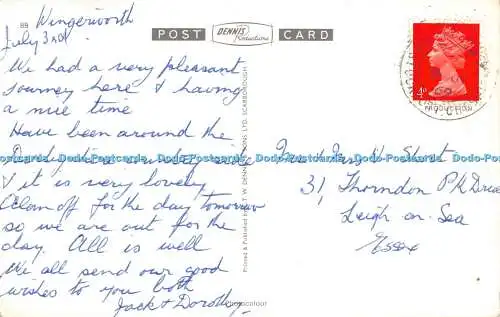 89
Wingerworth
July 3rd.
POST DENNIS Productions CARD
We had a very pleasant
journey here & having
a nice time
Have been around the
& it is very lovely
Alan off for the day tomorrow
so we are out for the
day. All is well
We all send our good
wishes to you both
Jack & Dorothy
Printed & Published by E.T.W. DENNIS & SONS LTD. SCARBOROUGH
Photocolour
4D
31, Thorndon Pk Drive
Leigh on Sea
Essex
Dodo-Postcards Dodo-Postcards Dodo-Postcards Dodo-Postcards Dodo-Postcards